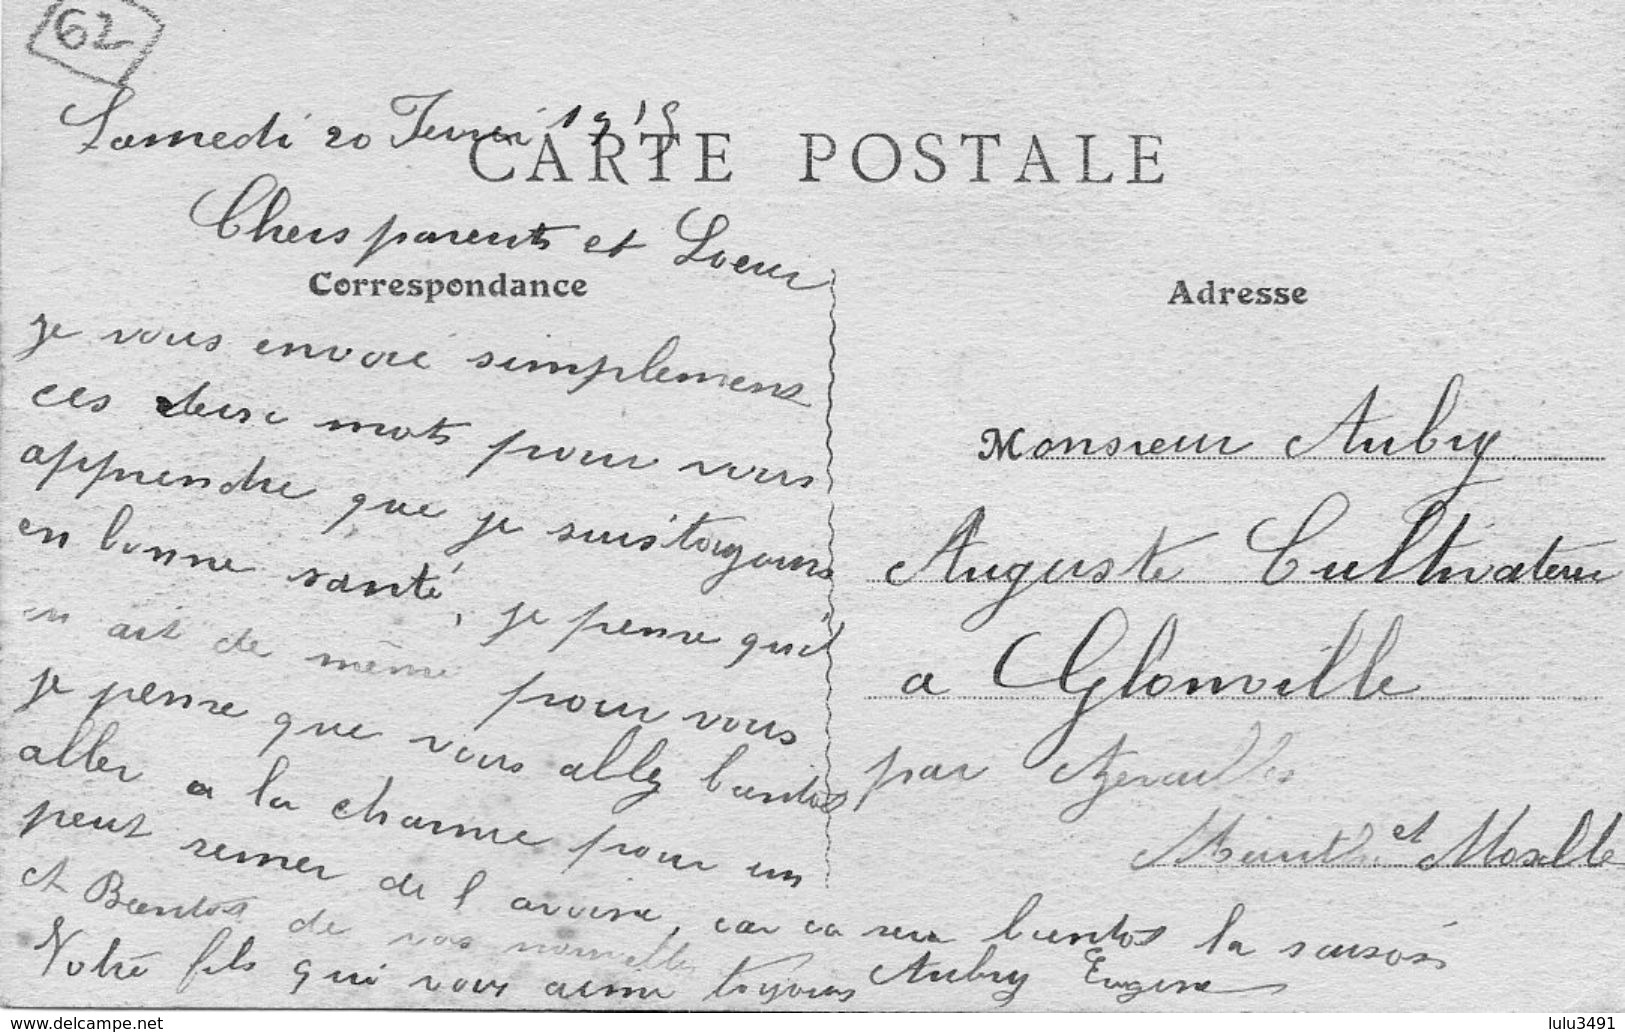 62
Samedi 20 Fevrier 1915
CARTE POSTALE
Chers parents et Soeur
Correspondance
je vous envoié simplemens
ces deux mots pour vous
apprendre que je suis toujours
en bonne santé, je pense qu'il
en ait de même pour vous
je pense que vous allez bientos
aller a la charrue pour un
peut semer de l avoine, car ca sera bientos la saison
et Bientos de vos nouvelles
Notre fils qui vous aime toujours Aubry Eugene
Adresse
Monsieur Aubry
Auguste Cultivateur
a Glonville
par Azerailles
Meurthe et Moselle
www.delcampe.net
lulu3491